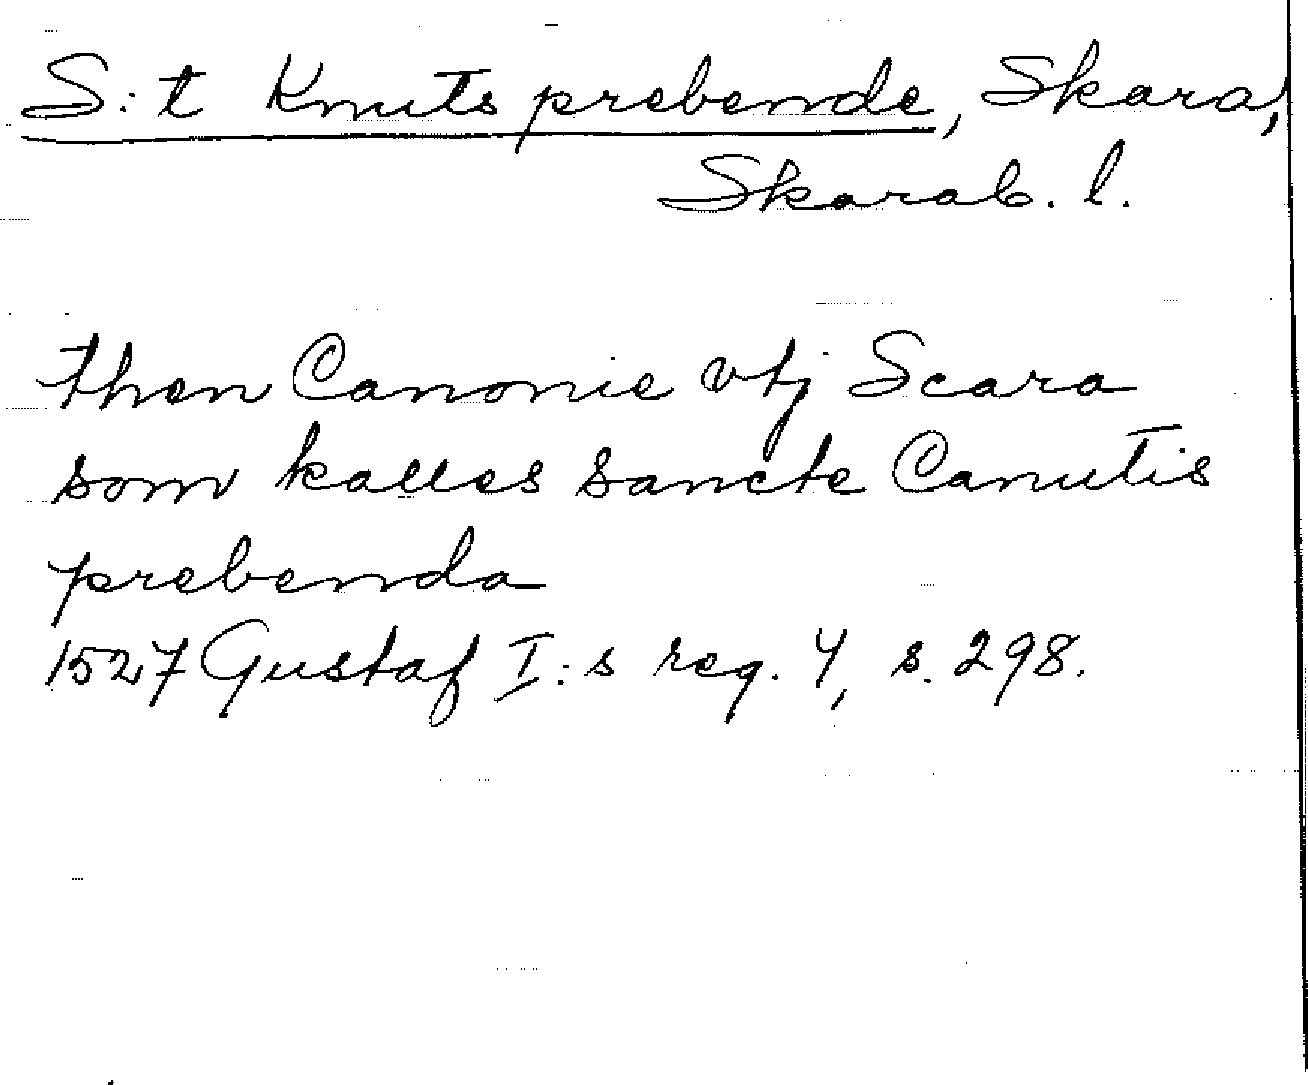 S:t Knuts prebende, Skara,
Skarab. l.
then Canonie vtj Scara
som kalles sancte Canutis
prebenda
1527 Gustaf I:s reg. 4, s. 298.